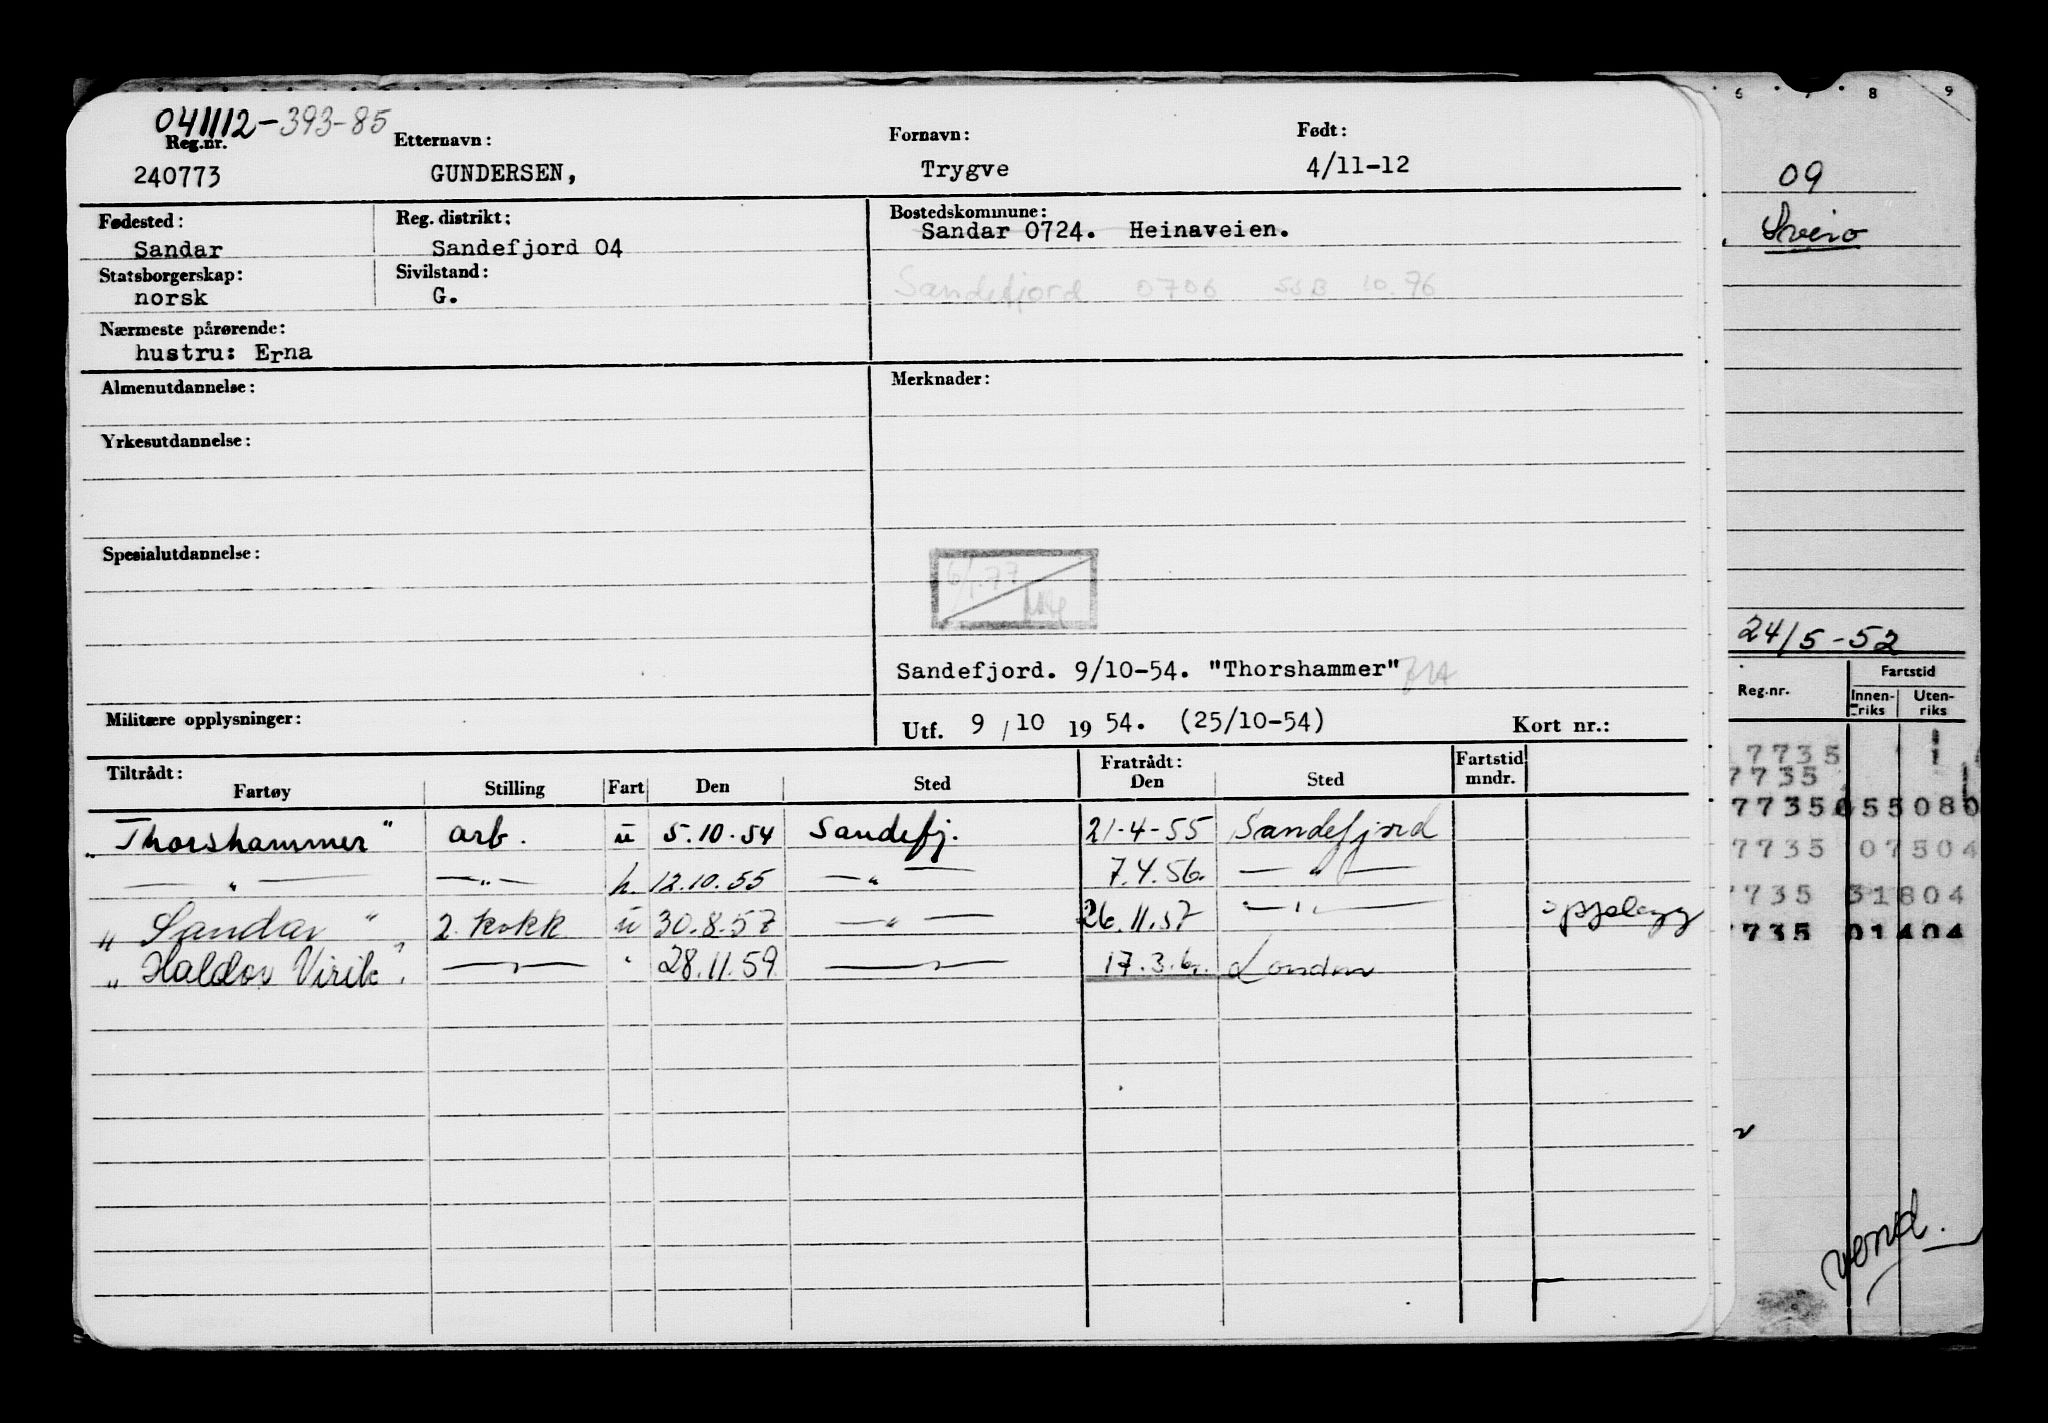 041112-393-85
Reg.nr. Etternavn: Fornavn: Født:
240773 GUNDERSEN, Trygve 4/11-12
Fødested: Reg. distrikt: Bostedskommune:
Sandar Sandefjord 04 Sandar 0724. Heinaveien.
Statsborgerskap: Sivilstand:
norsk G. Sandefjord 0706 SSB 10.76
Nærmeste pårørende:
hustru: Erna
Almenutdannelse: Merknader:
Yrkesutdannelse:
Spesialutdannelse:
6/1.77
Sandefjord. 9/10-54. "Thorshammer"
Militære opplysninger: Utf. 9 / 10 19 54. (25/10-54) Kort nr.:
Tiltrådt: Fratrådt: Fartstid
Fartøy Stilling Fart Den Sted Den Sted mndr.
„Thorshammer" arb. u 5.10.54 Sandefj. 21-4-55 Sandefjord
— " — — " — h. 12.10.55 — " — 7.4.56. — " —
„Sandar" 2. kokk u 30.8.57 — " — 26.11.57 — " —
„Haldor Virik" — " — " 28.11.59 — " — 17.3. London
6 7 8 9
09
Sveio
24/5-52
Fartstid
Reg.nr. Innen-riks Uten-riks
7735 1
7735
7735 055080
7735 07504
7735 31804
7735 01404
vend.